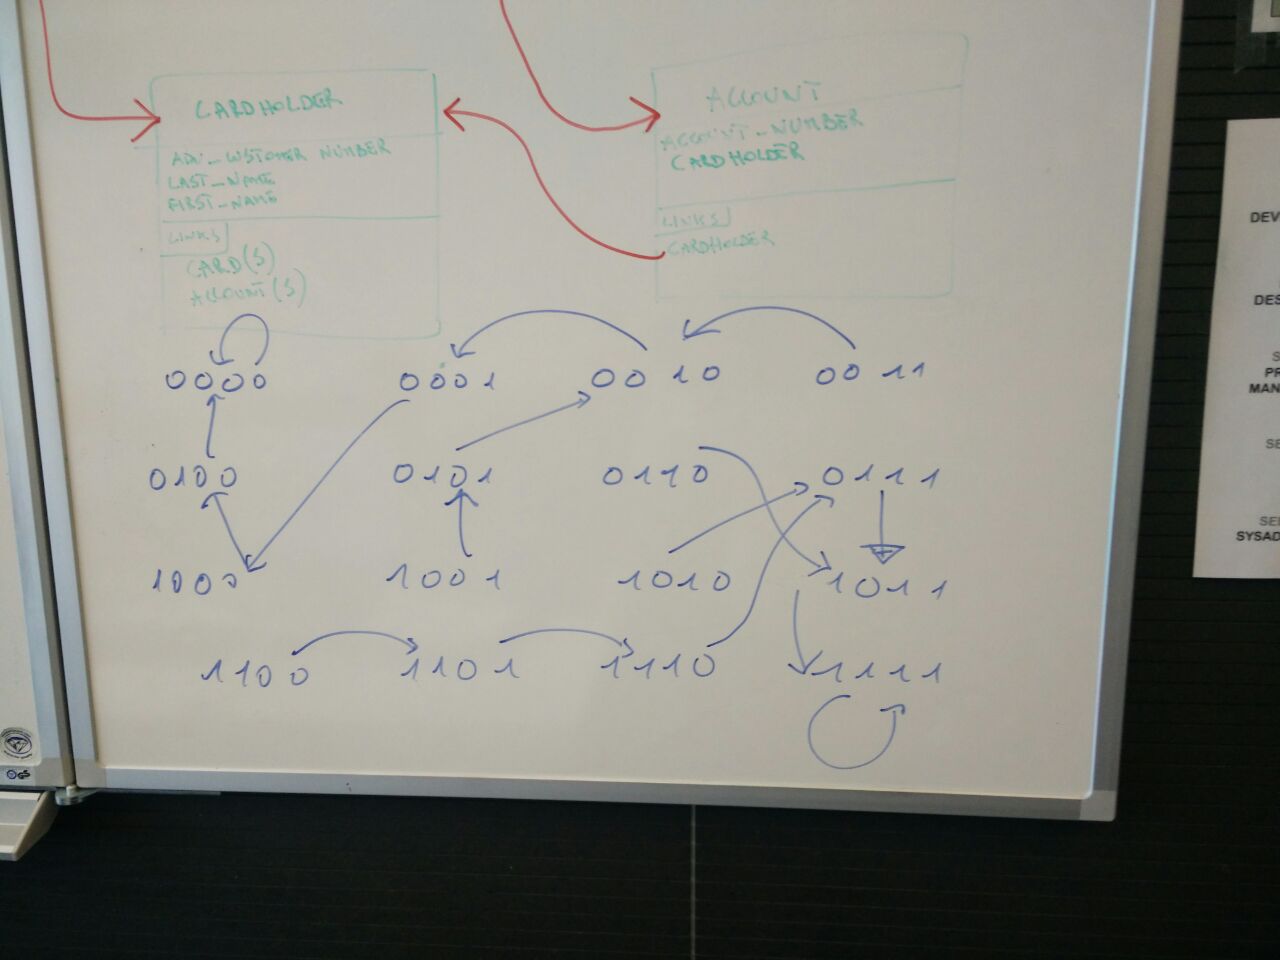 CARDHOLDER
LAST_NAME
FIRST_NAME
LINKS
CARD(S)
ACCOUNT(S)
ACCOUNT
ACCOUNT_NUMBER
CARDHOLDER
LINKS
CARDHOLDER
0000 0001 0010 0011
0100 0101 0110 0111
1000 1001 1010 1011
1100 1101 1110 1111
DEV
DES
S
PR
MAN
SE
SE
SYSAD